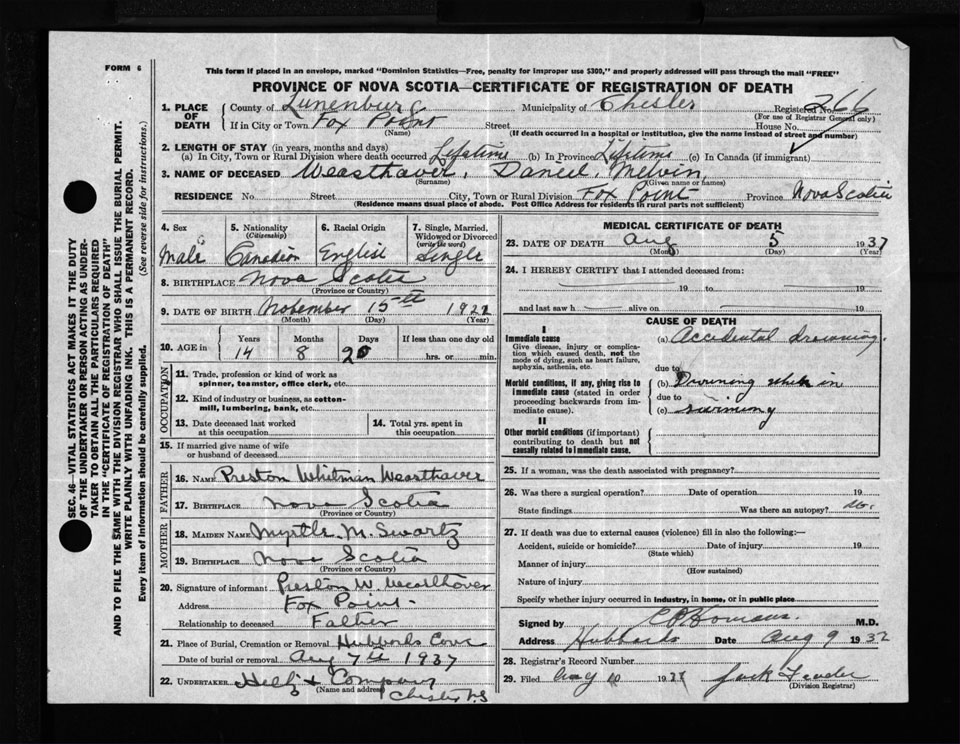 FORM 6
This form if placed in an envelope, marked "Dominion Statistics—Free, penalty for improper use $300," and properly addressed will pass through the mail "FREE"
PROVINCE OF NOVA SCOTIA—CERTIFICATE OF REGISTRATION OF DEATH
1. PLACE OF DEATH
County of Lunenburg Municipality of Chester Registered No. 266
(For use of Registrar General only)
If in City or Town Fox Point Street House No.
(Name) (If death occurred in a hospital or institution, give the name instead of street and number)
2. LENGTH OF STAY (in years, months and days)
(a) In City, Town or Rural Division where death occurred Lifetime (b) In Province Lifetime (c) In Canada (if immigrant)
3. NAME OF DECEASED Weasthaver, Daniel Melvin,
(Surname) (Given name or names)
RESIDENCE No. Street City, Town or Rural Division Fox Point Province Nova Scotia
(Residence means usual place of abode. Post Office Address for residents in rural parts not sufficient)
4. Sex
Male
5. Nationality
(Citizenship)
Canadian
6. Racial Origin
English
7. Single, Married, Widowed or Divorced
(write the word)
Single
8. BIRTHPLACE Nova Scotia
(Province or Country)
9. DATE OF BIRTH November 15th 1922
(Month) (Day) (Year)
10. AGE in Years Months Days If less than one day old
14 8 20 hrs. or min.
OCCUPATION
11. Trade, profession or kind of work as spinner, teamster, office clerk, etc.
12. Kind of industry or business, as cotton-mill, lumbering, bank, etc.
13. Date deceased last worked at this occupation
14. Total yrs. spent in this occupation
15. If married give name of wife or husband of deceased
FATHER
16. NAME Preston Whitman Weasthaver
17. BIRTHPLACE Nova Scotia
(Province or Country)
MOTHER
18. MAIDEN NAME Myrtle M. Swartz
19. BIRTHPLACE Nova Scotia
(Province or Country)
20. Signature of informant Preston W. Weasthaver
Address Fox Point
Relationship to deceased Father
21. Place of Burial, Cremation or Removal Hubbards Cove
Date of burial or removal Aug 7th 1937
22. UNDERTAKER & Company
(Name and address) Chester N.S
MEDICAL CERTIFICATE OF DEATH
23. DATE OF DEATH Aug 5 1937
(Month) (Day) (Year)
24. I HEREBY CERTIFY that I attended deceased from:
19 to 19
and last saw h alive on 19
CAUSE OF DEATH
I
Immediate cause
Give disease, injury or complication which caused death, not the mode of dying, such as heart failure, asphyxia, asthenia, etc.
(a) Accidental drowning.
due to
Morbid conditions, if any, giving rise to immediate cause (stated in order proceeding backwards from immediate cause).
(b) Drowning while in
due to
(c) swiming
II
Other morbid conditions (if important) contributing to death but not causally related to immediate cause.
25. If a woman, was the death associated with pregnancy?
26. Was there a surgical operation? Date of operation 19
State findings Was there an autopsy? No.
27. If death was due to external causes (violence) fill in also the following:—
Accident, suicide or homicide? Date of injury 19
(State which)
Manner of injury
(How sustained)
Nature of injury
Specify whether injury occurred in industry, in home, or in public place
Signed by M.D.
Address Hubbards Date Aug 9 1937
28. Registrar's Record Number
29. Filed Aug 10 1937
(Division Registrar)
SEC. 46—VITAL STATISTICS ACT MAKES IT THE DUTY OF THE UNDERTAKER OR PERSON ACTING AS UNDERTAKER TO OBTAIN ALL THE PARTICULARS REQUIRED IN THE "CERTIFICATE OF REGISTRATION OF DEATH" AND TO FILE THE SAME WITH THE DIVISION REGISTRAR WHO SHALL ISSUE THE BURIAL PERMIT.
WRITE PLAINLY WITH UNFADING INK. THIS IS A PERMANENT RECORD.
Every item of information should be carefully supplied. (See reverse side for instructions.)